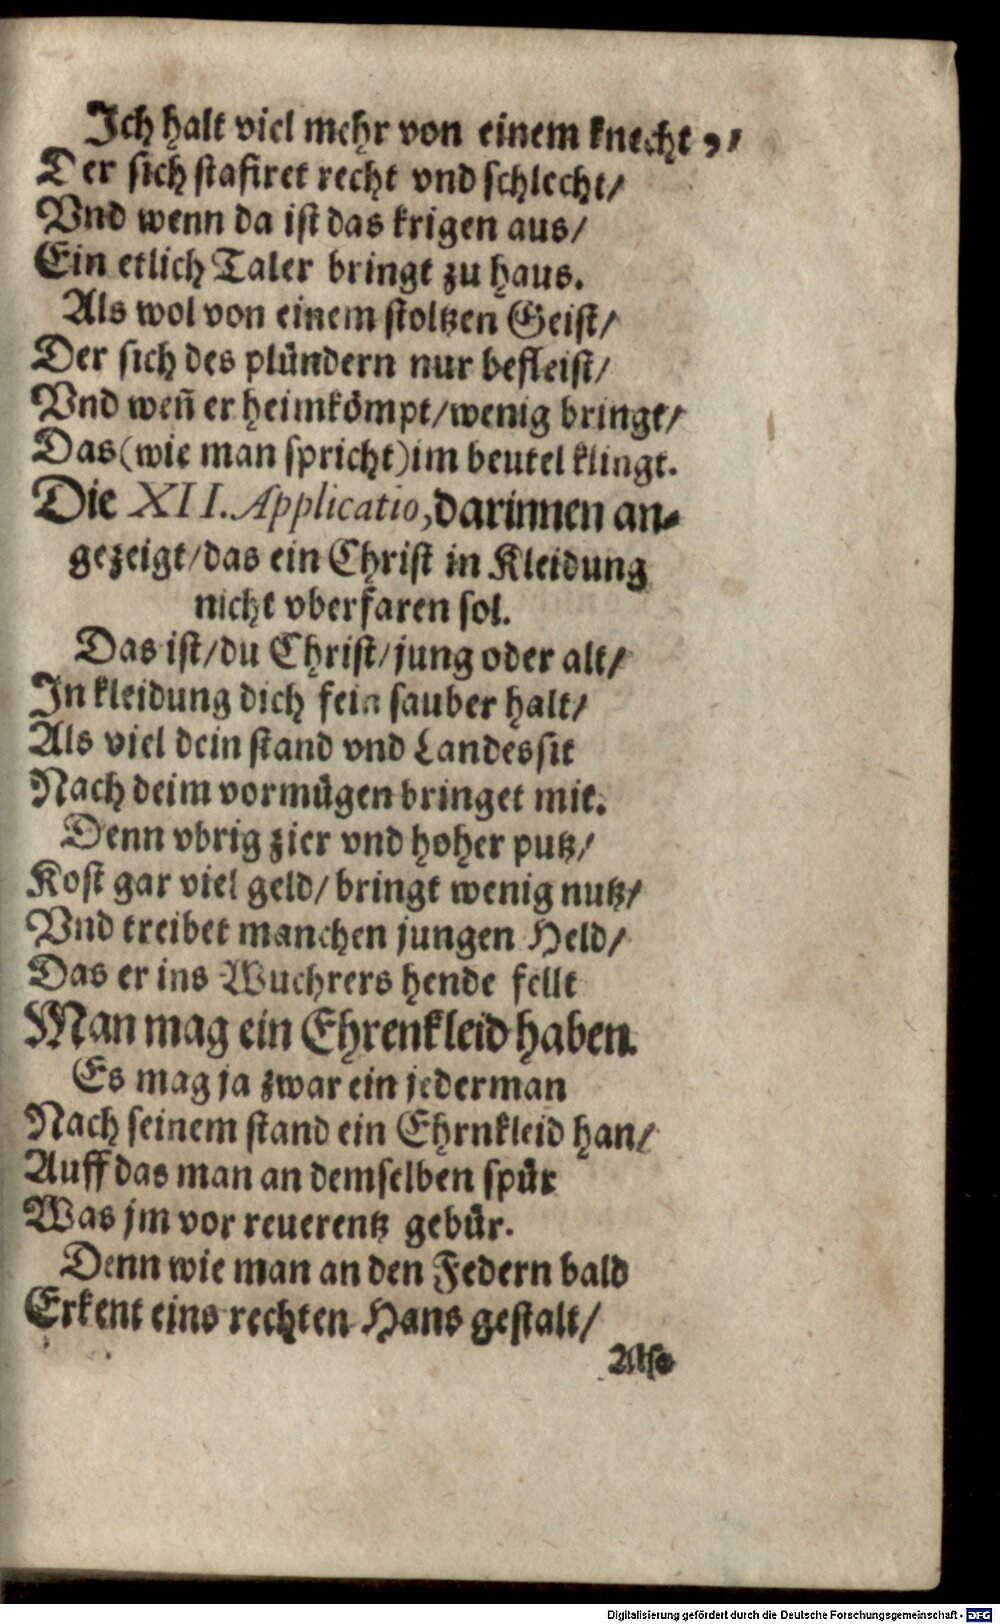 Ich halt viel mehr von einem knecht,/
Der sich stafiret recht vnd schlecht/
Vnd wenn da ist das krigen aus/
Ein etlich Taler bringt zu haus.
Als wol von einem stoltzen Geist/
Der sich des plündern nur befleist/
Vnd weñ er heimkömpt/wenig bringt/
Das(wie man spricht)im beutel klingt.
Die XII. Applicatio, darinnen an-
gezeigt/das ein Christ in Kleidung
nicht vberfaren sol.
Das ist/du Christ/jung oder alt/
In kleidung dich fein sauber halt/
Als viel dein stand vnd Landessit
Nach deim vormügen bringet mit.
Denn vbrig zier vnd hoher putz/
Kost gar viel geld/bringt wenig nutz/
Vnd treibet manchen jungen Held/
Das er ins Wuchrers hende fellt
Man mag ein Ehrenkleid haben.
Es mag ja zwar ein jederman
Nach seinem stand ein Ehrnkleid han/
Auff das man an demselben spür
Was jm vor reuerentz gebür.
Denn wie man an den Federn bald
Erkent eins rechten Hans gestalt/
Also
Digitalisierung gefördert durch die Deutsche Forschungsgemeinschaft - DFG